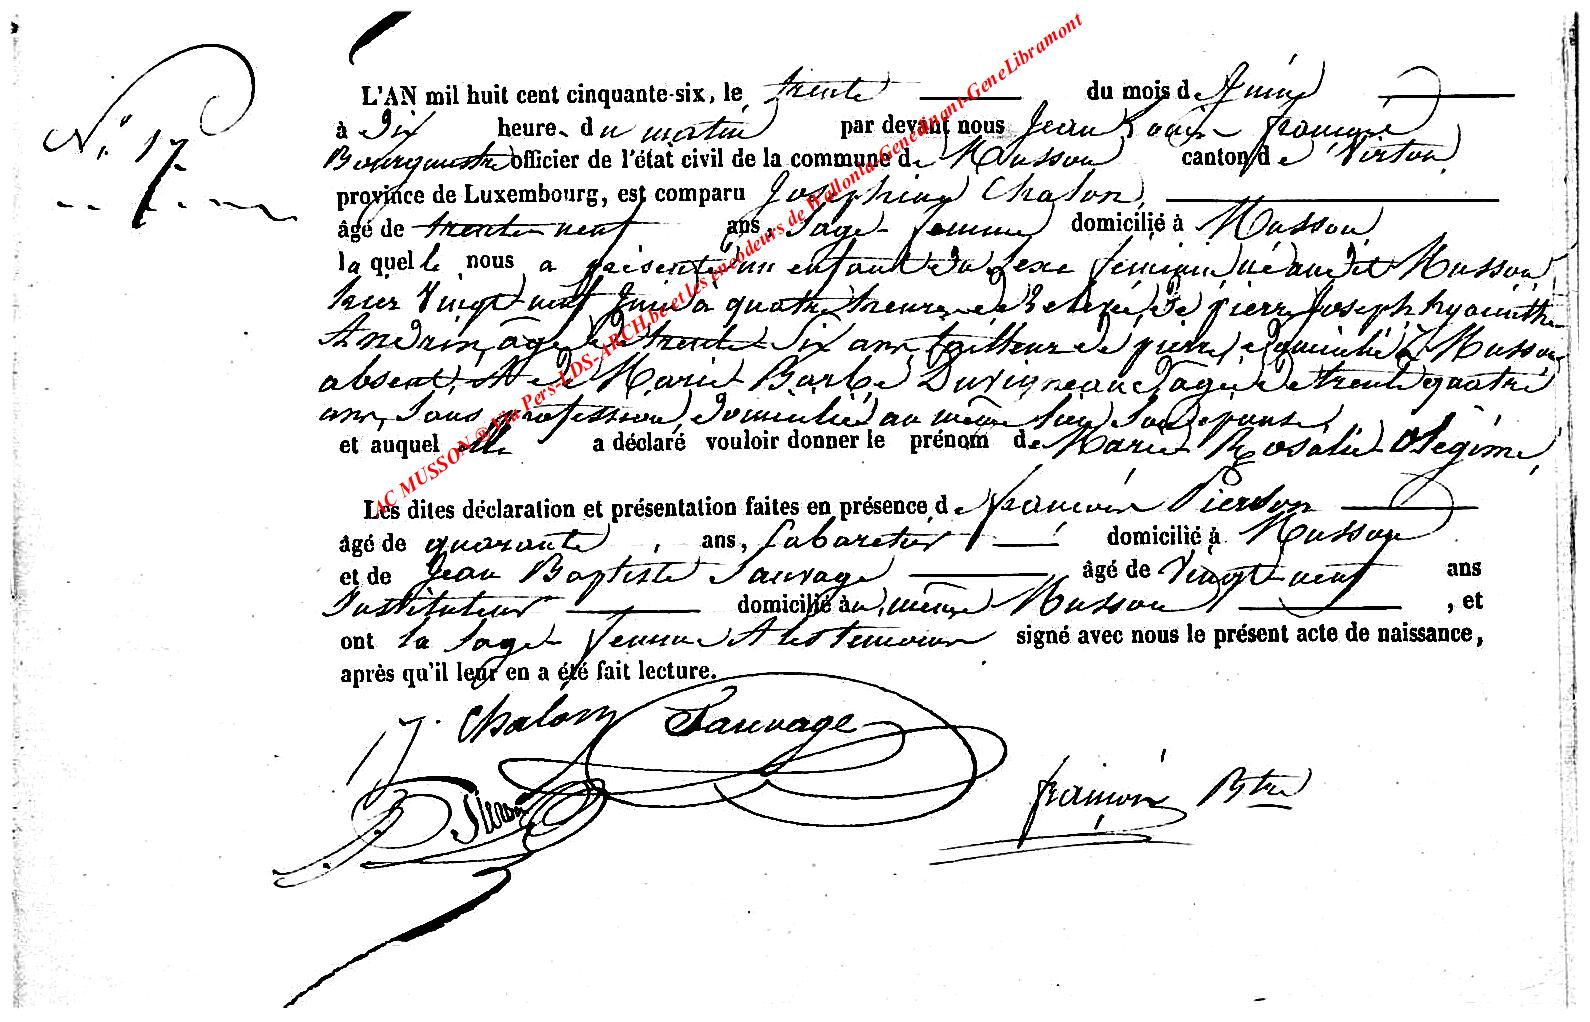 N.º 17
L'AN mil huit cent cinquante-six, le trente du mois de Juin
à Dix heure du matin par devant nous Jean Louis françois
Bourgmestre officier de l'état civil de la commune de Musson canton de Virton
province de Luxembourg, est comparu Josephine Chalon,
âgé de trente neuf ans, Sage-femme domicilié à Musson
laquelle nous a présenté un enfant du Sexe féminin né audit Musson
hier Vingt neuf Juin à quatre heures de relevée, de pierre Joseph hyacinthe
Andrin, âgé de trente Six ans, tailleur de pierre, domicilié à Musson
absent, et de Marie Barbe Duvigneaud âgée de trente quatre
ans, Sans profession, domiciliée au même lieu Son Epouse,
et auquel elle a déclaré vouloir donner le prénom de Marie Rosalie
Les dites déclaration et présentation faites en présence de françois Pierson
âgé de quarante ans, Cabaretier domicilié à Musson
et de Jean Baptiste Sauvage âgé de Vingt neuf ans
Instituteur domicilié au même Musson , et
ont la Sage femme et les temoins signé avec nous le présent acte de naissance,
après qu'il leur en a été fait lecture.
J. Chalon Sauvage
Pierson françois Btre
AC MUSSON @ Via Pers-LDS-ARCH.be et les encodeurs de Wallonia-Genedinant-GeneLibramont